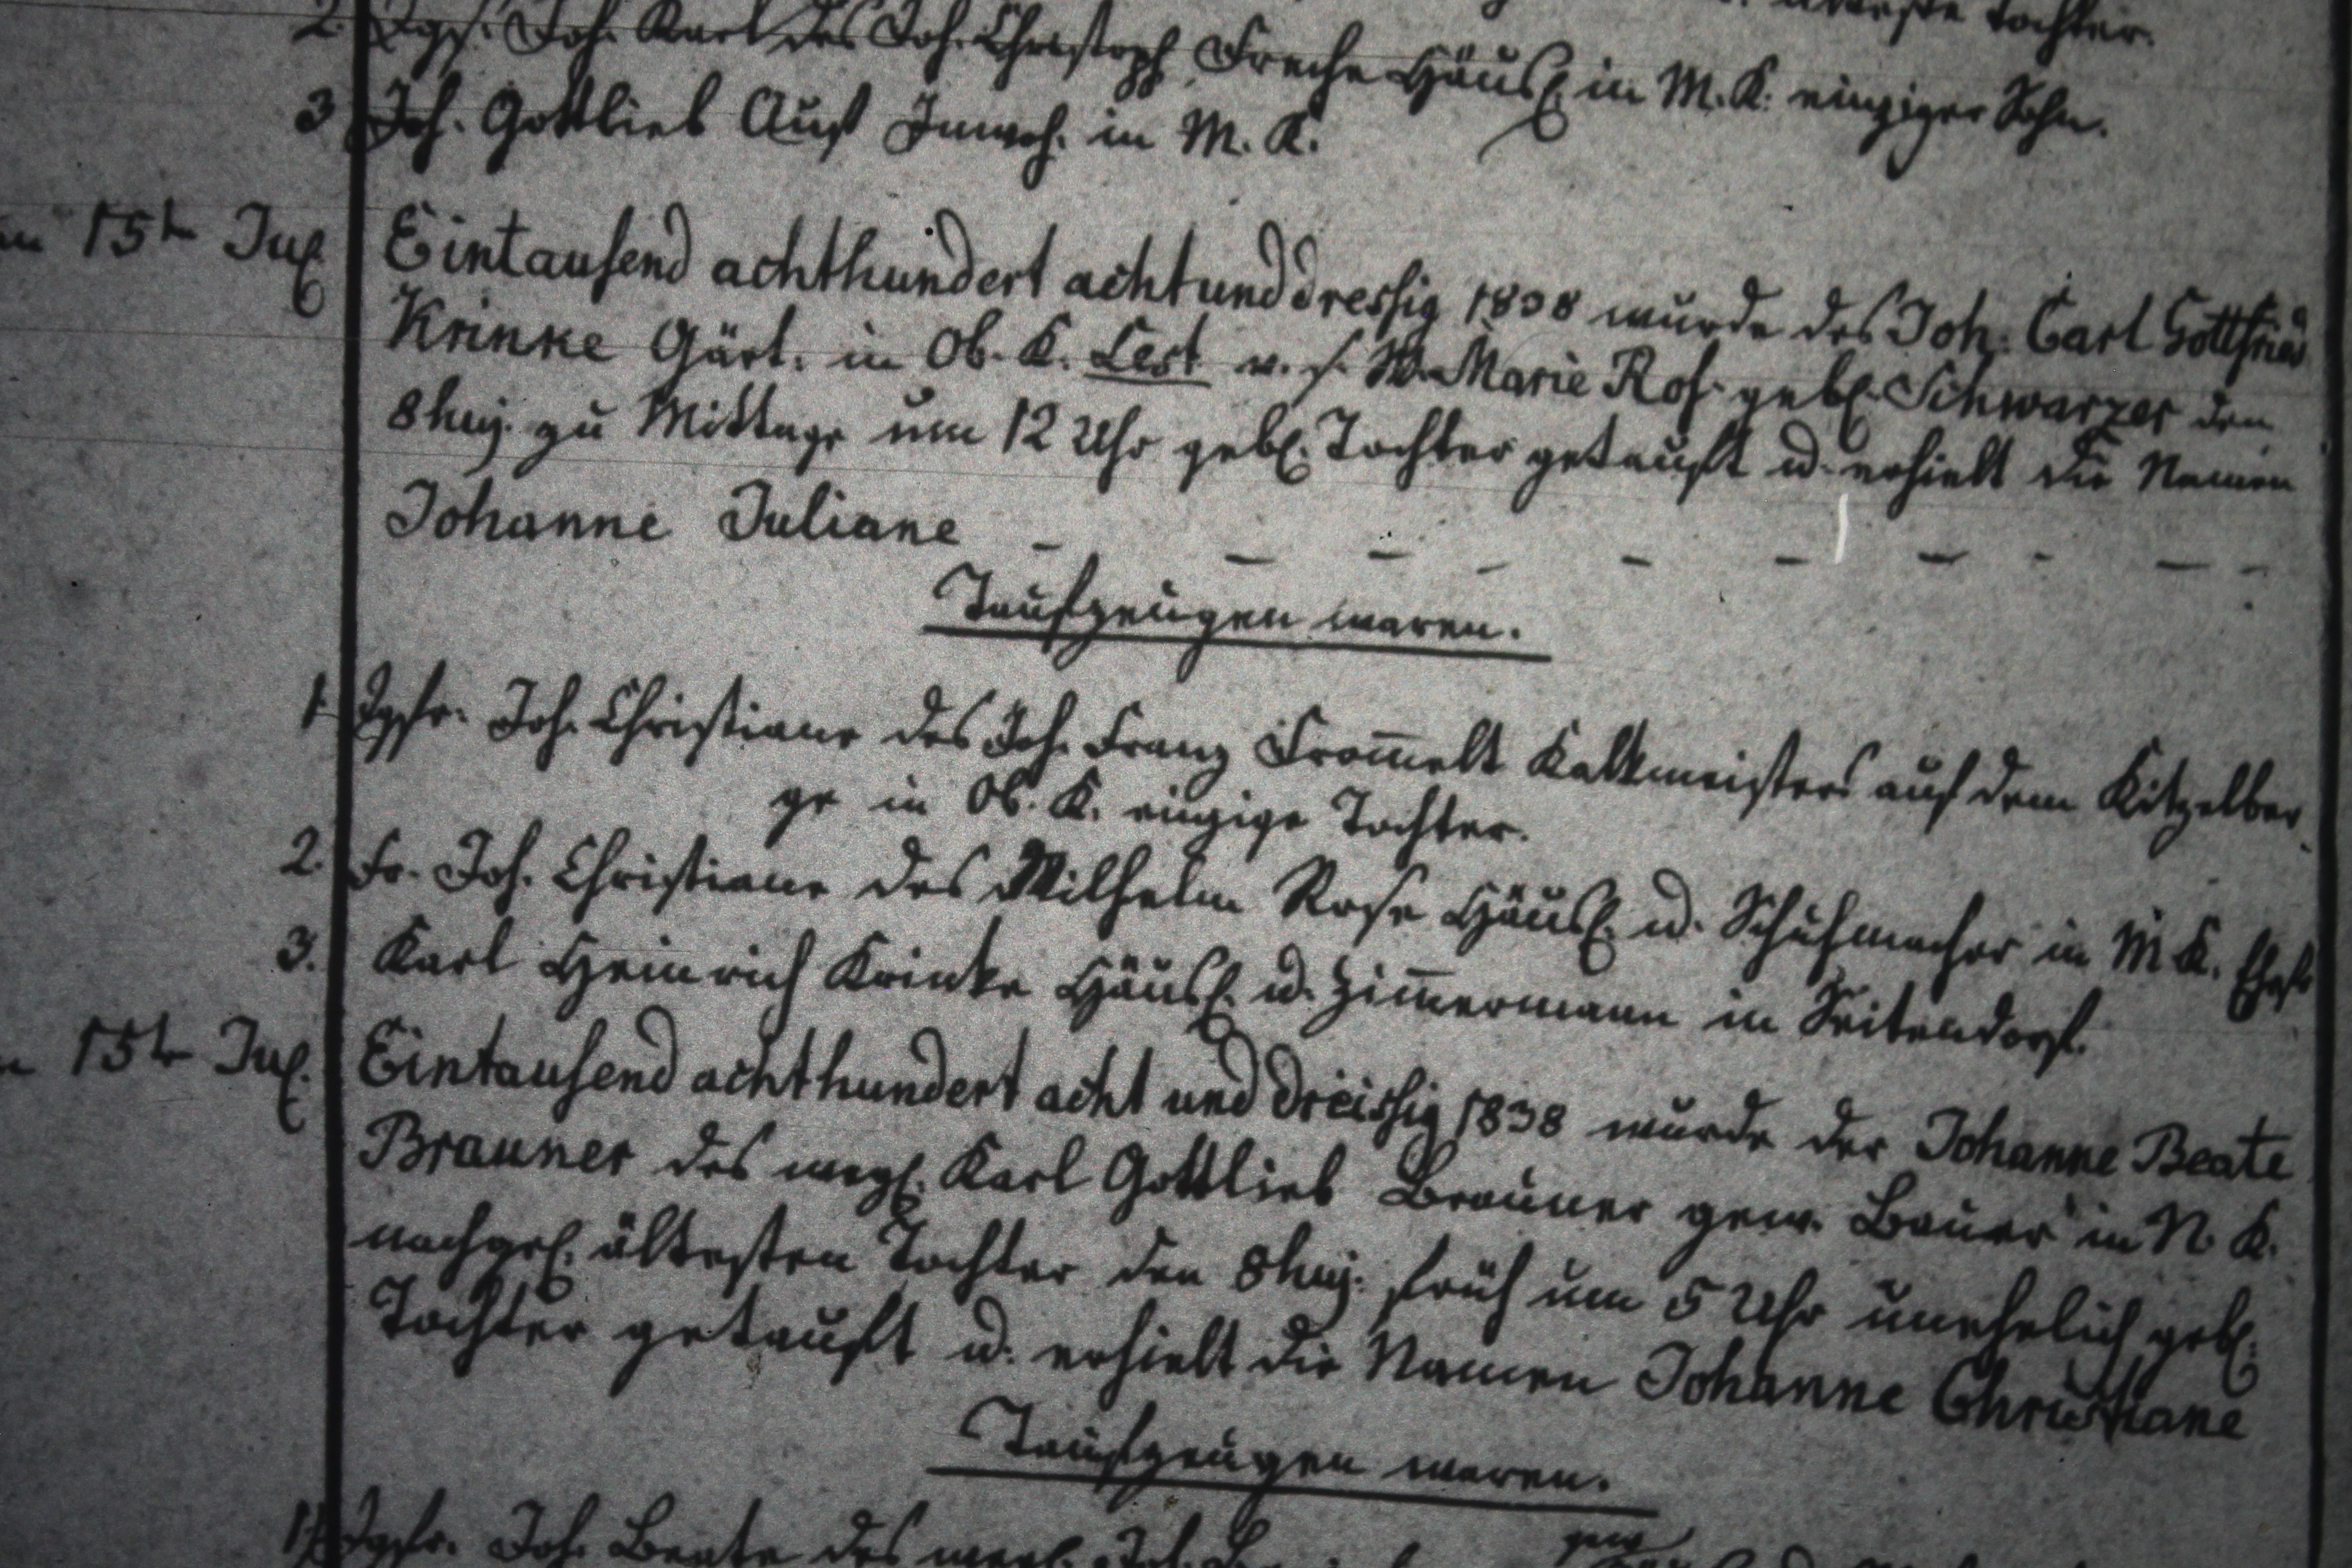 älteste Tochter.
2. Jggs. Joh. Karl des Joh. Christoph Freche Häusl. in M. K. einziger Sohn.
3 Joh. Gottlieb Aust Inwoh. in M. K.
15tn Jul. Eintausend achthundert achtunddressig 1838 wurde des Joh. Carl Gottfried
Krinke Gärt. in Ob. K. Lest v. s. W. Marie Ros. gebl. Schwarzer den
8 huj. zu Mittage um 12 Uhr gebl. Tochter getauft u. erhielt die Namen
Johanne Juliane
Taufzeugen waren.
1. Jgfr. Joh. Christiane des Joh. Franz From̄elt Kalkmeisters auf dem Kitzelber
ge in Ob. K. einzige Tochter.
2. Fr. Joh. Christiane des Wilhelm Rose Häusl. u. Schuhmacher in M. K. Ehefr
3. Karl Heinrich Krinke Häusl. u. Zim̄ermann in Seitendorf.
15tn Jul. Eintausend achthundert acht und dreissig 1838 wurde der Johanne Beate
Brauner des weyl. Karl Gottlieb Brauner gew. Bauer in N. K.
nachgel. ältesten Tochter den 8 huj. früh um 5 Uhr unehelich gebl.
Tochter getauft u. erhielt die Namen Johanne Christiane
Taufzeugen waren.
gew
1. Jgfr. Joh. Beate des weyl. Joh.